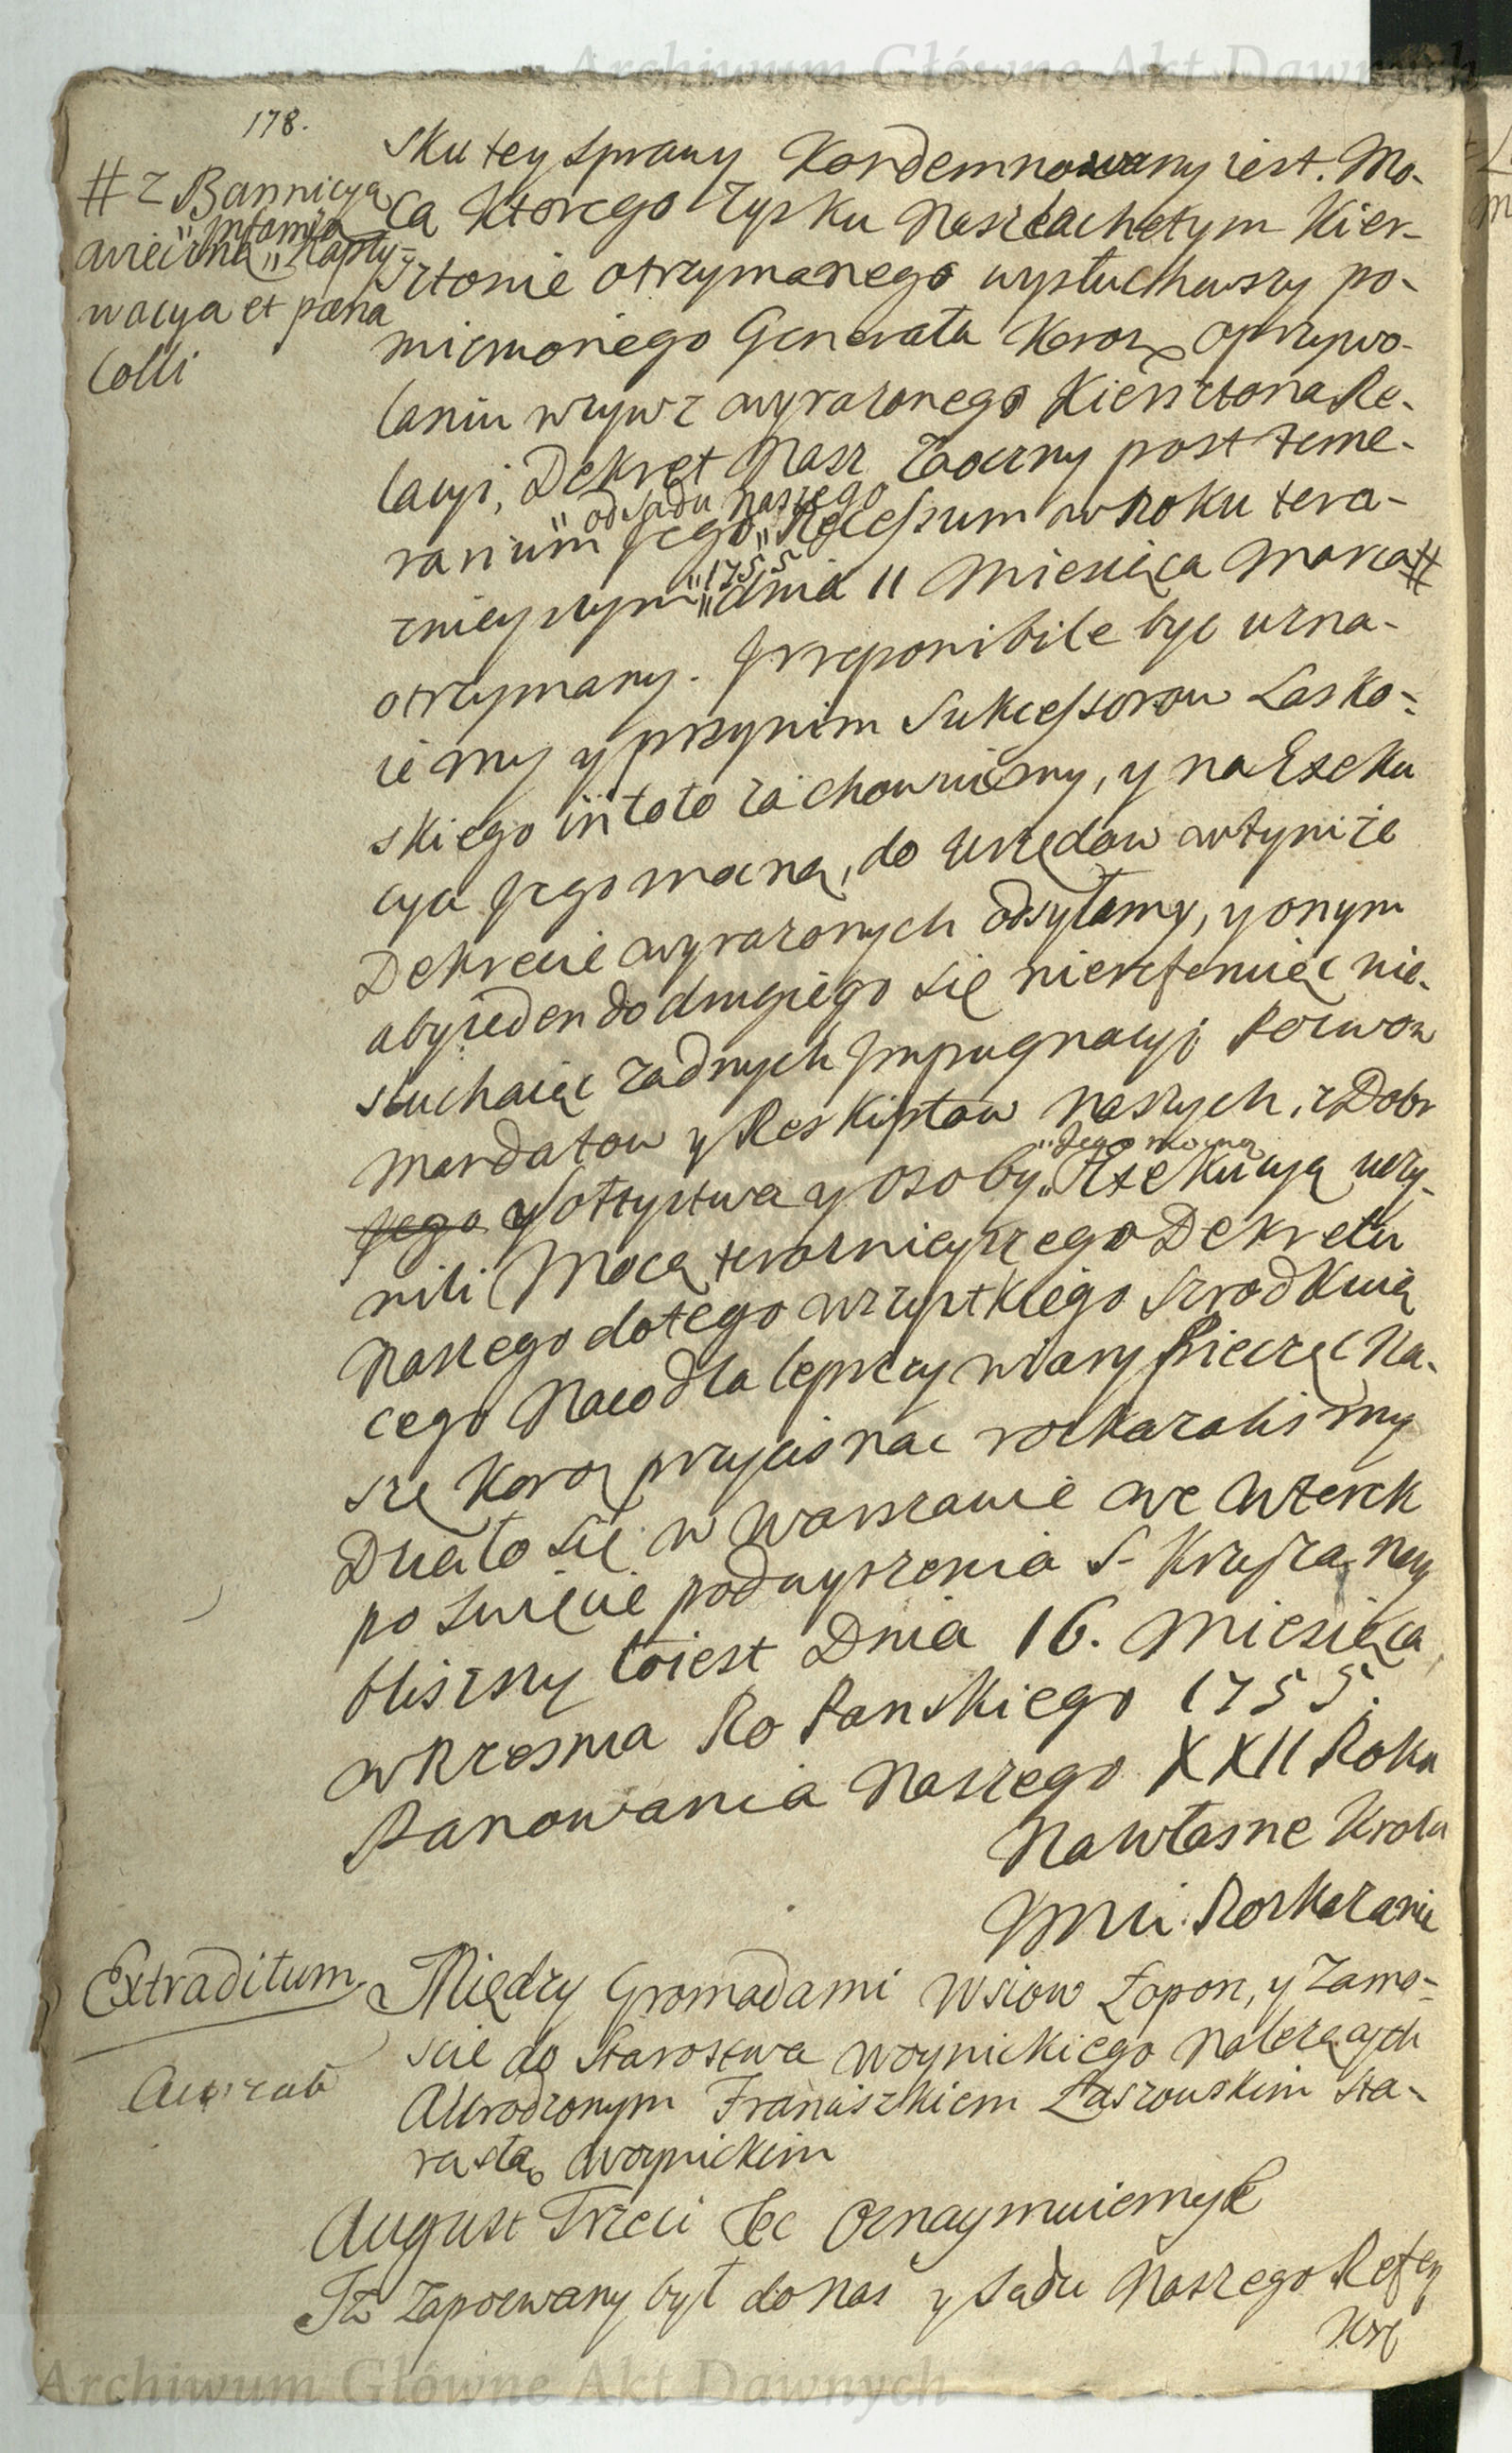 Archiwum Główne Akt Dawnych
178.
# z Bannicyą
„Infamią
wieczną „Kapty-
wacyą et pœna
Colli
sku tey sprawy Kondemnowany iest. Mo-
cą ktorego zysku naszlachetym Kier-
sztonie otrzymanego wysłuchawszy po-
mienionego Generała Koron o przywo-
laniu wzywz wyrazonego Kiersztona Re-
lacyi, Dekret Nasz Zaoczny post teme-
„od sądu naszego
rarium Jego „Recessum w Roku tera-
„1755
znieyszym „dnia 11 Miesiąca Marca #
otrzymany. Irreponibile byc uzna-
iemy y przynim Sukcessorow Lasko-
skiego in toto zachowuiemy, y na Exeku
cyą Jego mocną, do Urzędow w tymże
Dekrecie wyrazonych odsyłamy, y onym
aby ieden do drugiego się nieref­eruiąc nie-
słuchaiąc zadnych Impugnacyi Pozwow
Mandatow y Reskiptow naszych, z Dobr
„Jego mocną
Jego y Sołtystwa y osoby „Exekucyą uczy-
nili Mocą teraznieyszego Dekretu
Naszego dotego wszystkiego srzodkuią
cego Naco dla lepszey wiary Pieczęc Na-
szę Koro przycisnac roskazalismy
Działo się w Warszawie we Wtorek
po Swięcie podwyszenia S- Krzyza nay
bliszszy to iest Dnia 16. Miesiąca
Wrzesnia Ro Panskiego 1755.
Panowania Naszego XXII Roku
Na Własne Krola
Jmci Roskazanie
Extraditum
Między Gromadami Wsiow Łopon, y Zamo-
scie do Starostwa Woynickiego nalezących
a Urodzonym Franciszkiem Łaszowskim Sta-
rostą Woynickim
August Trzeci &c Oznaymuiemy &
Iż Zapozwany był do nas y Sądu Naszego Refen
Kre
Archiwum Główne Akt Dawnych